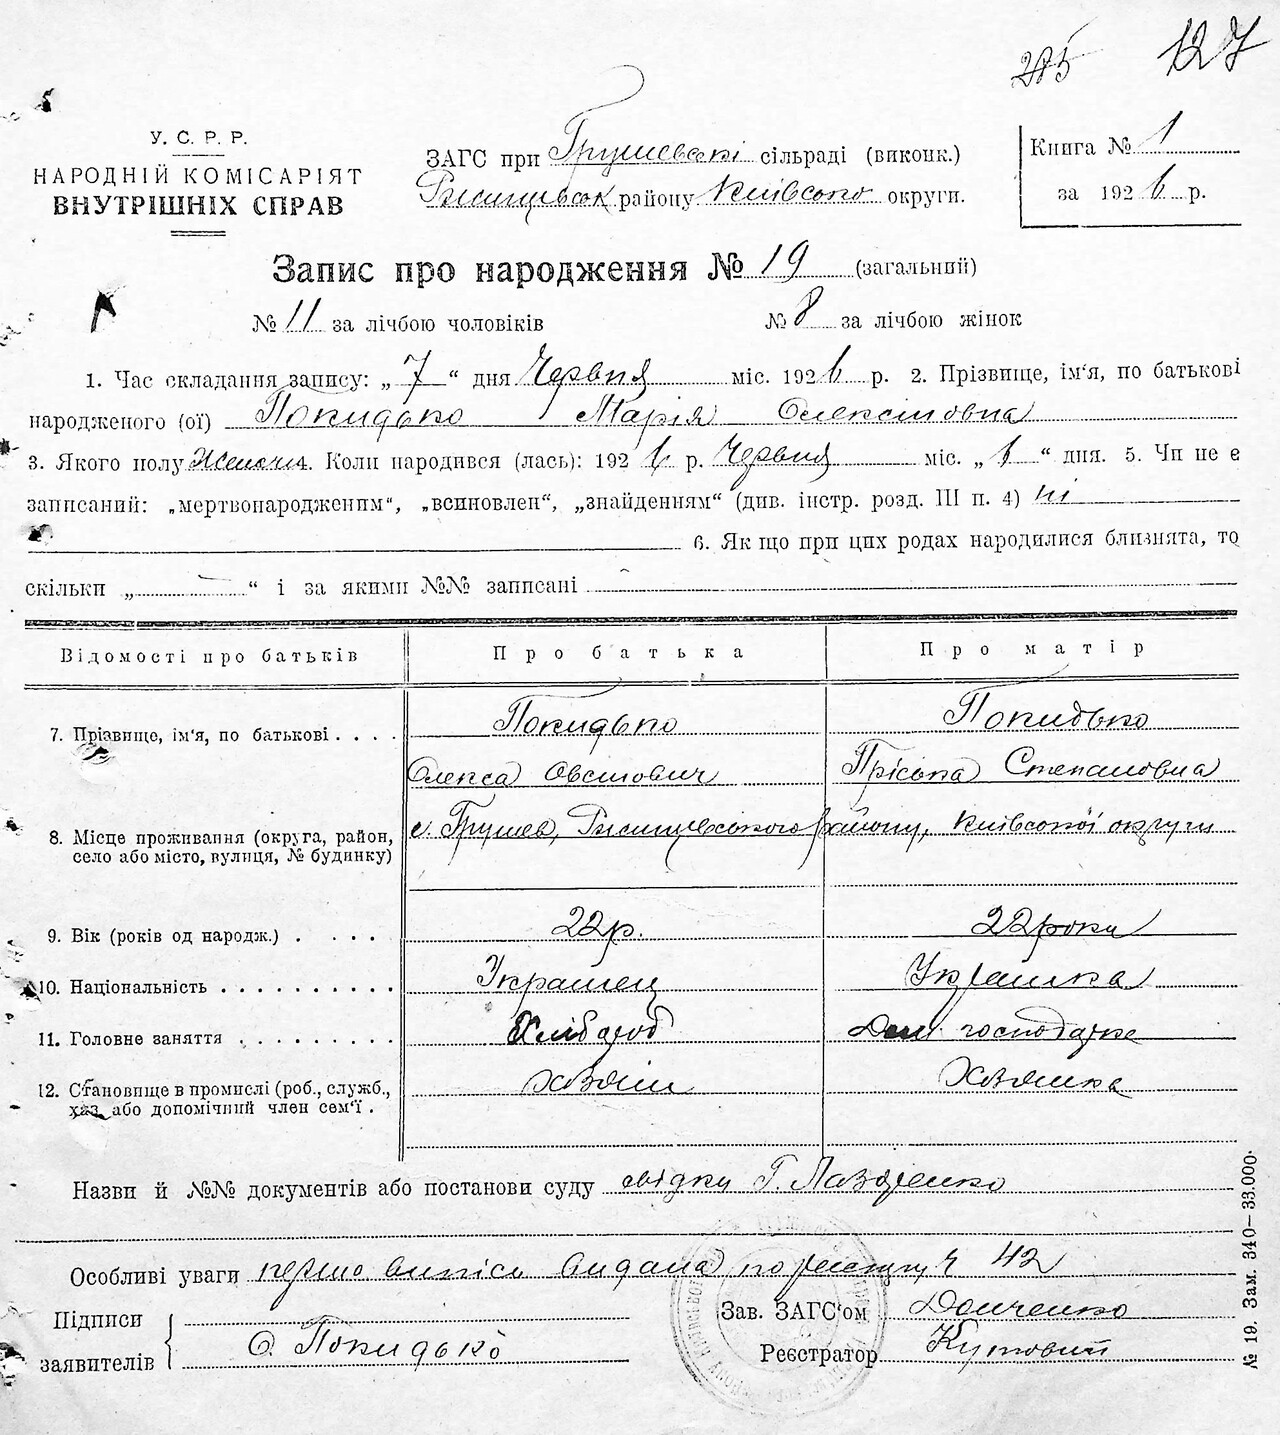 127
У. С. Р. Р.
НАРОДНІЙ КОМІСАРІЯТ
ВНУТРІШНІХ СПРАВ
ЗАГС при Грушевські сільраді (виконк.)
району Київсько округи.
Книга № 1
за 1926 р.
Запис про народження № 19 (загальний)
№ 11 за лічбою чоловіків
№ 8 за лічбою жінок
1. Час складання запису: „ 7 “ дня Червня міс. 1926 р. 2. Прізвище, ім'я, по батькові
народженого (ої) Покидько Марія Олексіовна
3. Якого полу Коли народився (лась): 1926 р. Червня міс. „ 6 “ дня. 5. Чи не є
записаний: „мертвонародженим“, „всиновлен“, „знайденням“ (див. інстр. розд. III п. 4) ні
6. Як що при цих родах народилися близнята, то
скільки „ “ і за якими №№ записані
Відомості про батьків
Про батька
Про матір
7. Прізвище, ім'я, по батькові . . . .
Покидько
Покидько
Олекса Овсіович
Пріська Степановна
8. Місце проживання (округа, район,
село або місто, вулиця, № будинку)
с. Грушев, району, Київської округи
9. Вік (років од народж.) . . . . .
22р.
22 роки
10. Національність . . . . . . . . . .
Українец
Українка
11. Головне заняття . . . . . . . . .
Хлібороб
Дом. господарка
12. Становище в промислі (роб., служб.,
хаз. або допомічний член сем'ї .
Хозяїн
Хозяика
Назви й №№ документів або постанови суду свідки Г. Лазаренко
Особливі уваги перша випись видана по реєстру ч 42
Підписи
заявителів
О. Покидько
Зав. ЗАГС'ом Донченко
Реєстратор Кутовий
№ 19. Зам. 340—33.000.